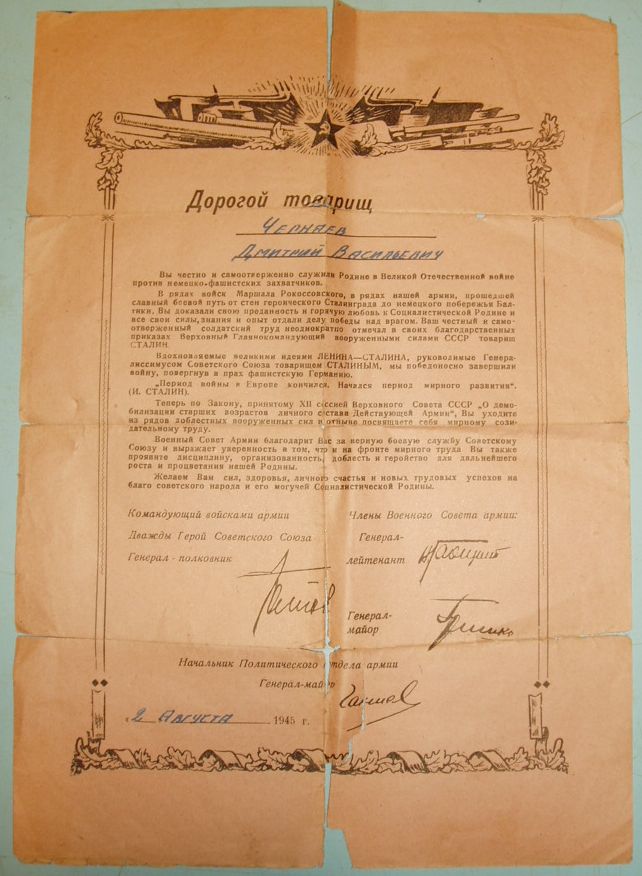 Дорогой товарищ
Чернаев
Дмитрий Васильевич
Вы честно и самоотверженно служили Родине в Великой Отечественной войне
против немецко-фашистских захватчиков.
В рядах войск Маршала Рокоссовского, в рядах нашей армии, прошедшей
славный боевой путь от стен героического Сталинграда до немецкого побережья Бал-
тики, Вы доказали свою преданность и горячую любовь к Социалистической Родине и
все свои силы, знания и опыт отдали делу победы над врагом. Ваш честный и само-
отверженный солдатский труд неоднократно отмечал в своих благодарственных
приказах Верховный Главнокомандующий вооруженными силами СССР товарищ
СТАЛИН.
Вдохновляемые великими идеями ЛЕНИНА—СТАЛИНА, руководимые Генера-
лиссимусом Советского Союза товарищем СТАЛИНЫМ, мы победоносно завершили
войну, повергнув в прах фашистскую Германию.
„Период войны в Европе кончился. Начался период мирного развития“.
(И. СТАЛИН).
Теперь по Закону, принятому XII сессией Верховного Совета СССР „О демо-
билизации старших возрастов личного состава Действующей Армии“, Вы уходите
из рядов доблестных вооруженных сил и отныне посвящаете себя мирному сози-
дательному труду.
Военный Совет Армии благодарит Вас за верную боевую службу Советскому
Союзу и выражает уверенность в том, что и на фронте мирного труда Вы также
проявите дисциплину, организованность, доблесть и геройство для дальнейшего
роста и процветания нашей Родины.
Желаем Вам сил, здоровья, личного счастья и новых трудовых успехов на
благо советского народа и его могучей Социалистической Родины.
Командующий войсками армии
Дважды Герой Советского Союза
Генерал-полковник
Члены Военного Совета армии:
Генерал-
лейтенант
Генерал-
майор
Начальник Политического отдела армии
Генерал-майор
„2 Августа 1945 г.